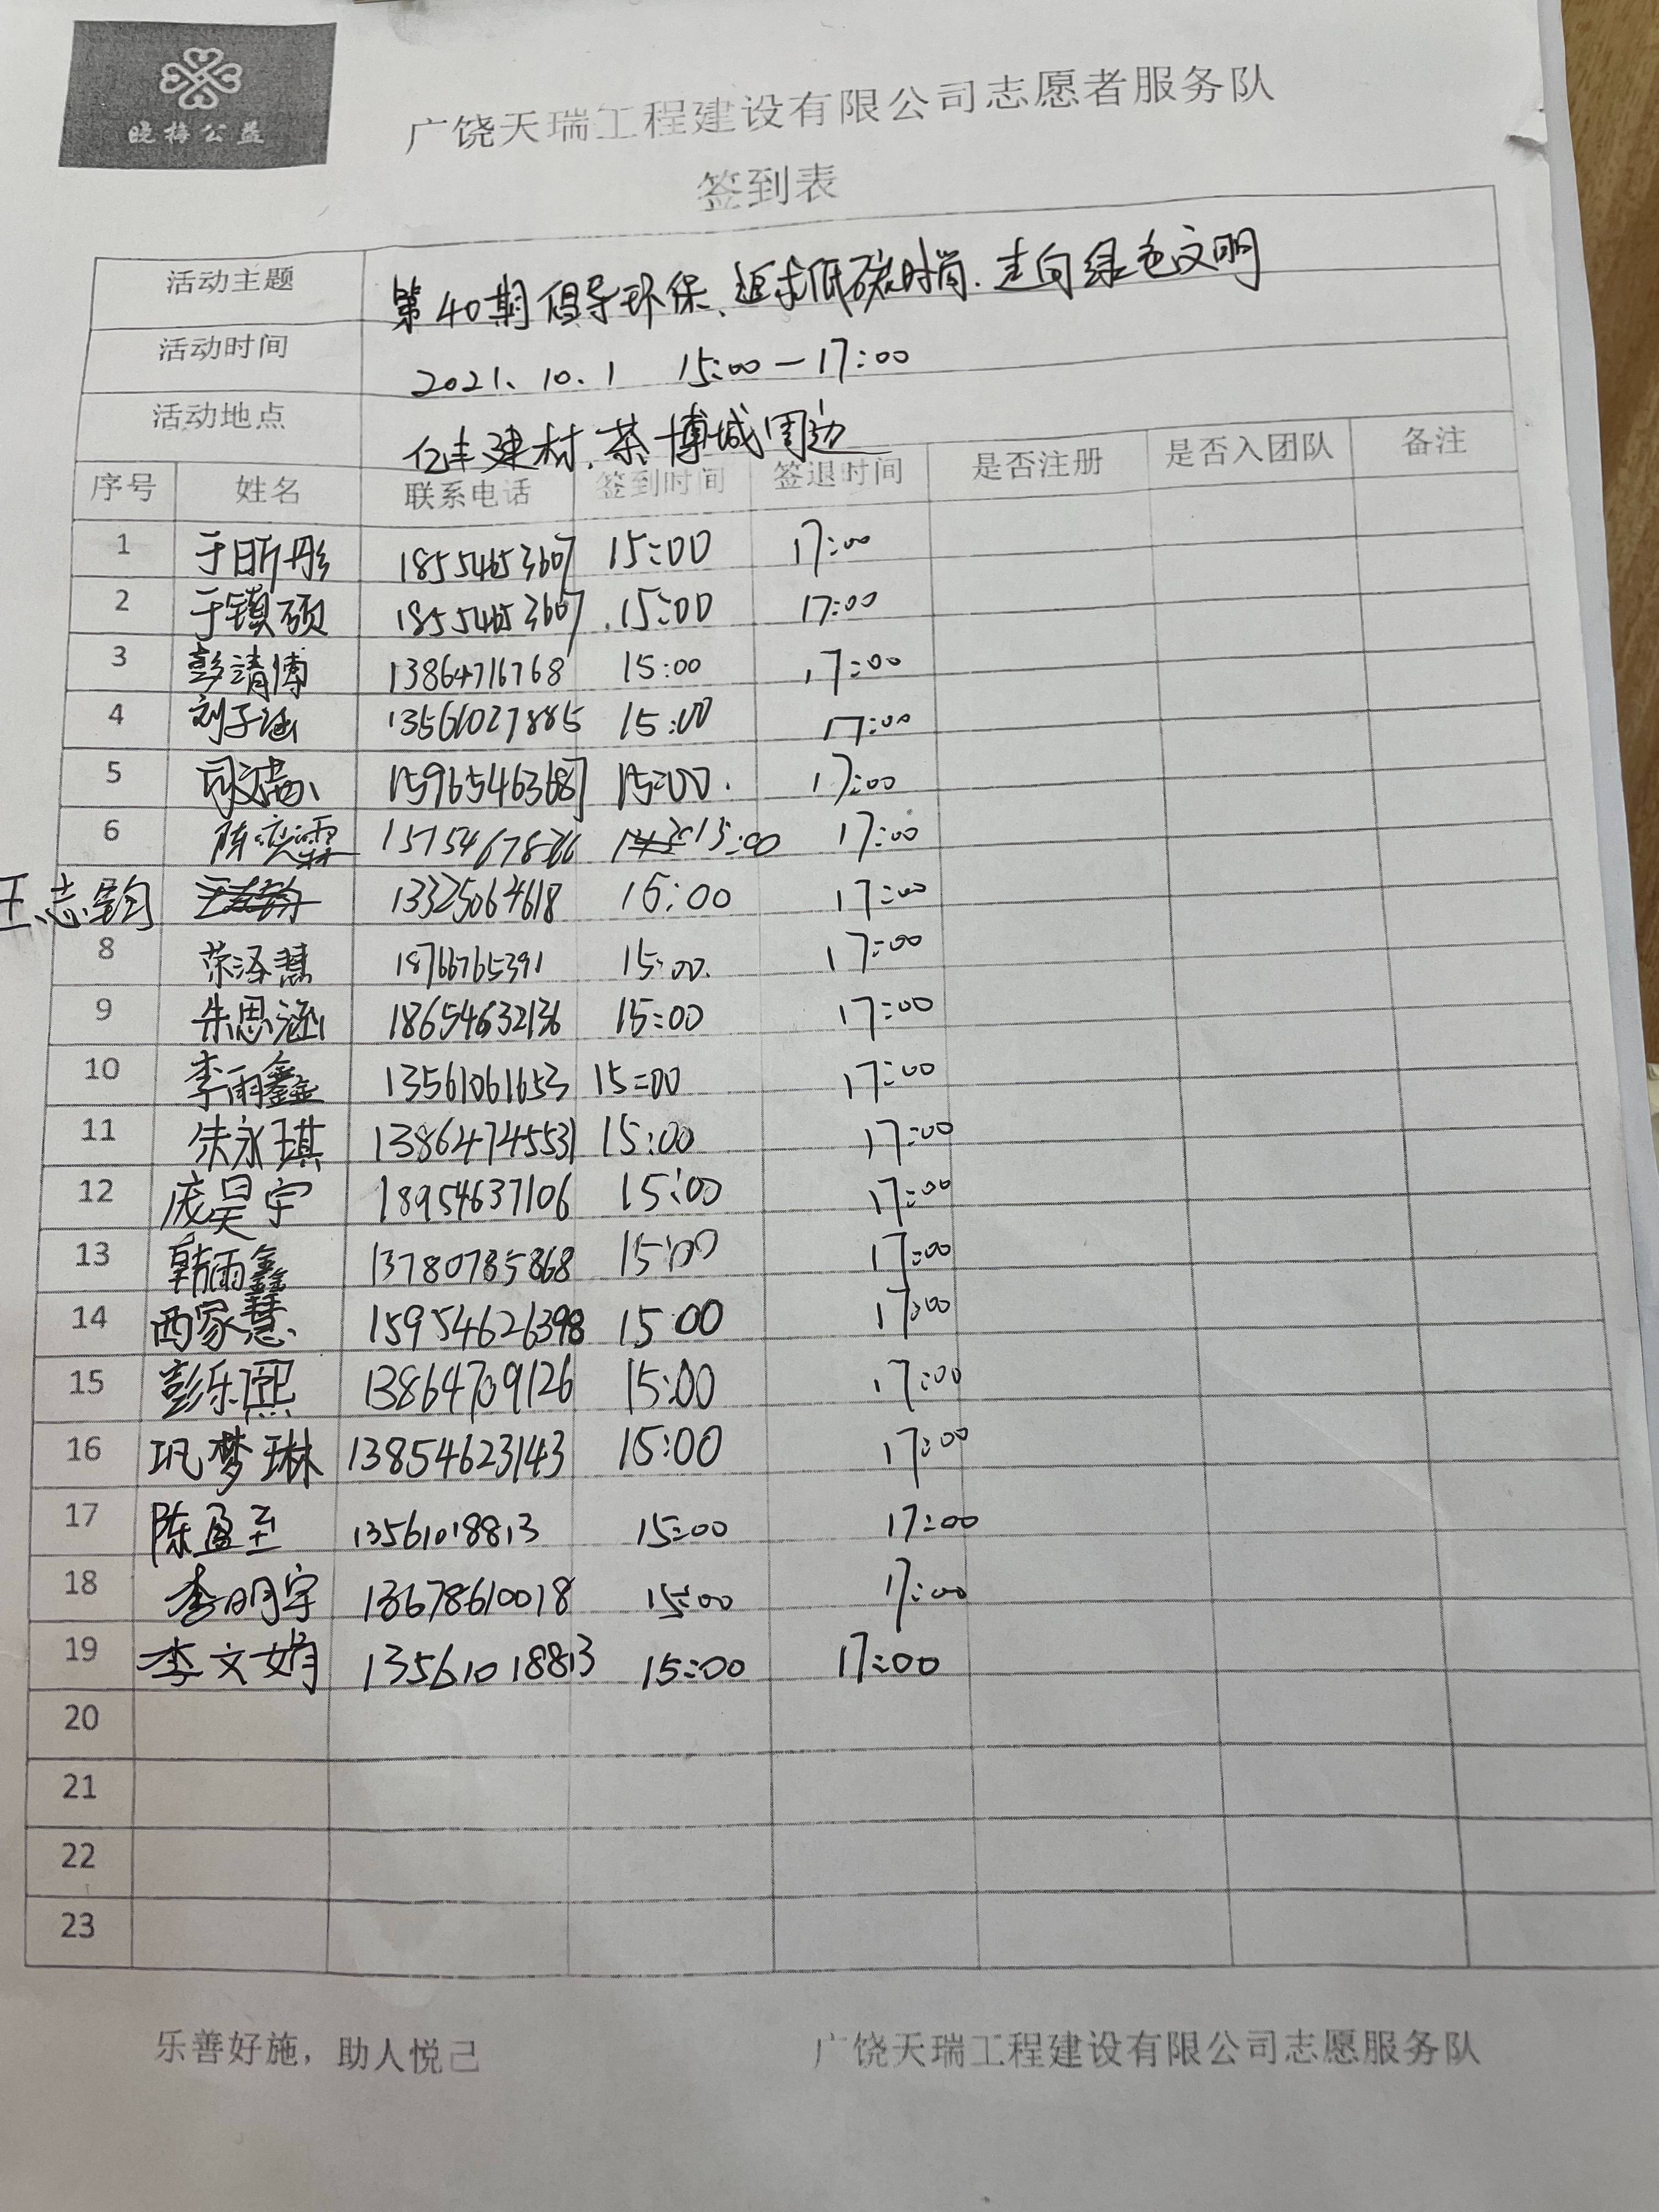 晓梅公益
广饶天瑞工程建设有限公司志愿者服务队
签到表
活动主题 第40期倡导环保、追求低碳时尚.走向绿色文明
活动时间 2021、10.1 15:00-17:00
活动地点 亿丰建材、茶博城周边
序号 姓名 联系电话 签到时间 签退时间 是否注册 是否入团队 备注
1 于昕彤 18554653607 15:00 17:00
2 于镇硕 18554653607 15:00 17:00
3 彭靖博 13864716768 15:00 17:00
4 刘子涵 13561027885 15:00 17:00
5 15965463687 15:00. 17:00
6 陈奕霖 15:00 17:00
王志钧 13325064618 15:00 17:00
8 荣泽慧 18766765391 15:00. 17:00
9 朱思涵 18654632136 15:00 17:00
10 李雨鑫 13561061653 15:00 17:00
11 朱永琪 13864745531 15:00 17:00
12 庞昊宇 18954637106 15:00 17:00
13 韩雨鑫 13780785868 15:00 17:00
14 西家慧 15954626398 15:00 17:00
15 彭乐熙 13864709126 15:00 17:00
16 巩梦琳 13854623143 15:00 17:00
17 陈盈至 13561018813 15:00 17:00
18 李明宇 13678610018 15:00 17:00
19 李文娟 13561018813 15:00 17:00
20
21
22
23
乐善好施，助人悦己 广饶天瑞工程建设有限公司志愿服务队